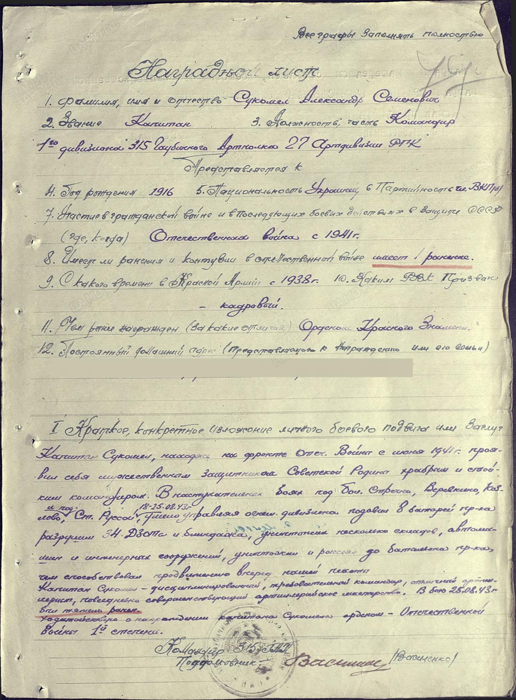 Все графы заполнять полностью
Наградной лист
1. Фамилия, имя и отчество Сукомел Александр Семенович
2. Звание Капитан 3. Должность, часть Командир
1го дивизиона 315 Гаубичного Артполка 27 Артдивизии РГК
Представляется к
4. Год рождения 1916 5. Национальность Украинец 6 Партийность чл. ВКП(б)
7. Участие в гражданской войне и в последующих боевых действиях в защите СССР
(где, когда) Отечественная война с 1941г.
8. Имеет ли ранения и контузии в отечественной войне имеет 1 ранение.
9. С какого времени в Красной Армии с 1938г. 10. Каким РВК призван
- кадровый.
11. Чем ранее награжден (за какие отличия) Орденом Красного Знамени.
12. Постоянный домашний адрес (представляемого к награждению или его семьи)
I Краткое, конкретное изложение личного боевого подвига или заслуг
Капитан Сукомел, находясь на фронте Отеч. Войны с июня 1941г. проя-
вил себя мужественным защитником Советской Родины храбрым и стой-
ким командиром. В наступательных боях под
и под 18-25.08.43г.
Ст. Руссой, управляя огнем дивизиона подавил 8 батарей пр-ка
разрушил 34 ДЗОТа и блиндажа, уничтожил несколько складов, автома-
шин и инженерных сооружений, уничтожил и рассеял до батальона пр-ка,
чем способствовал продвижению вперед нашей пехоты
Капитан Сукомел - дисциплинированный, требовательный командир, отличный артил-
лерист, повседневно совершенствующий артиллерийское мастерство. В бою 28.08.43г.
был тяжело ранен.
Ходатайствую о награждении капитана Сукомела орденом - Отечественной
Войны 1й степени.
Командир 315
Подполковник - (Василенко)